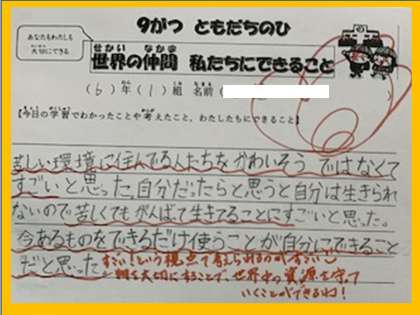 あなたもわたしも
大切にできる
9がつ ともだちのひ
世界の仲間 私たちにできること
(6)年(1)組 名前(
【今日の学習でわかったことや考えたこと、わたしたちにできること】
苦しい環境に住んでる人たちをかわいそうではなくて
すごいと思った。自分だったらと思うと自分は生きられ
ないので苦しくてもがんばて生きてることにすごいと思った。
今あるものをできるだけ使うことが自分にできること
だと思った
すごい!という視点で考えられるのがすごい
物を大切にすることで、世界中の資源を守って
いくことができるね!